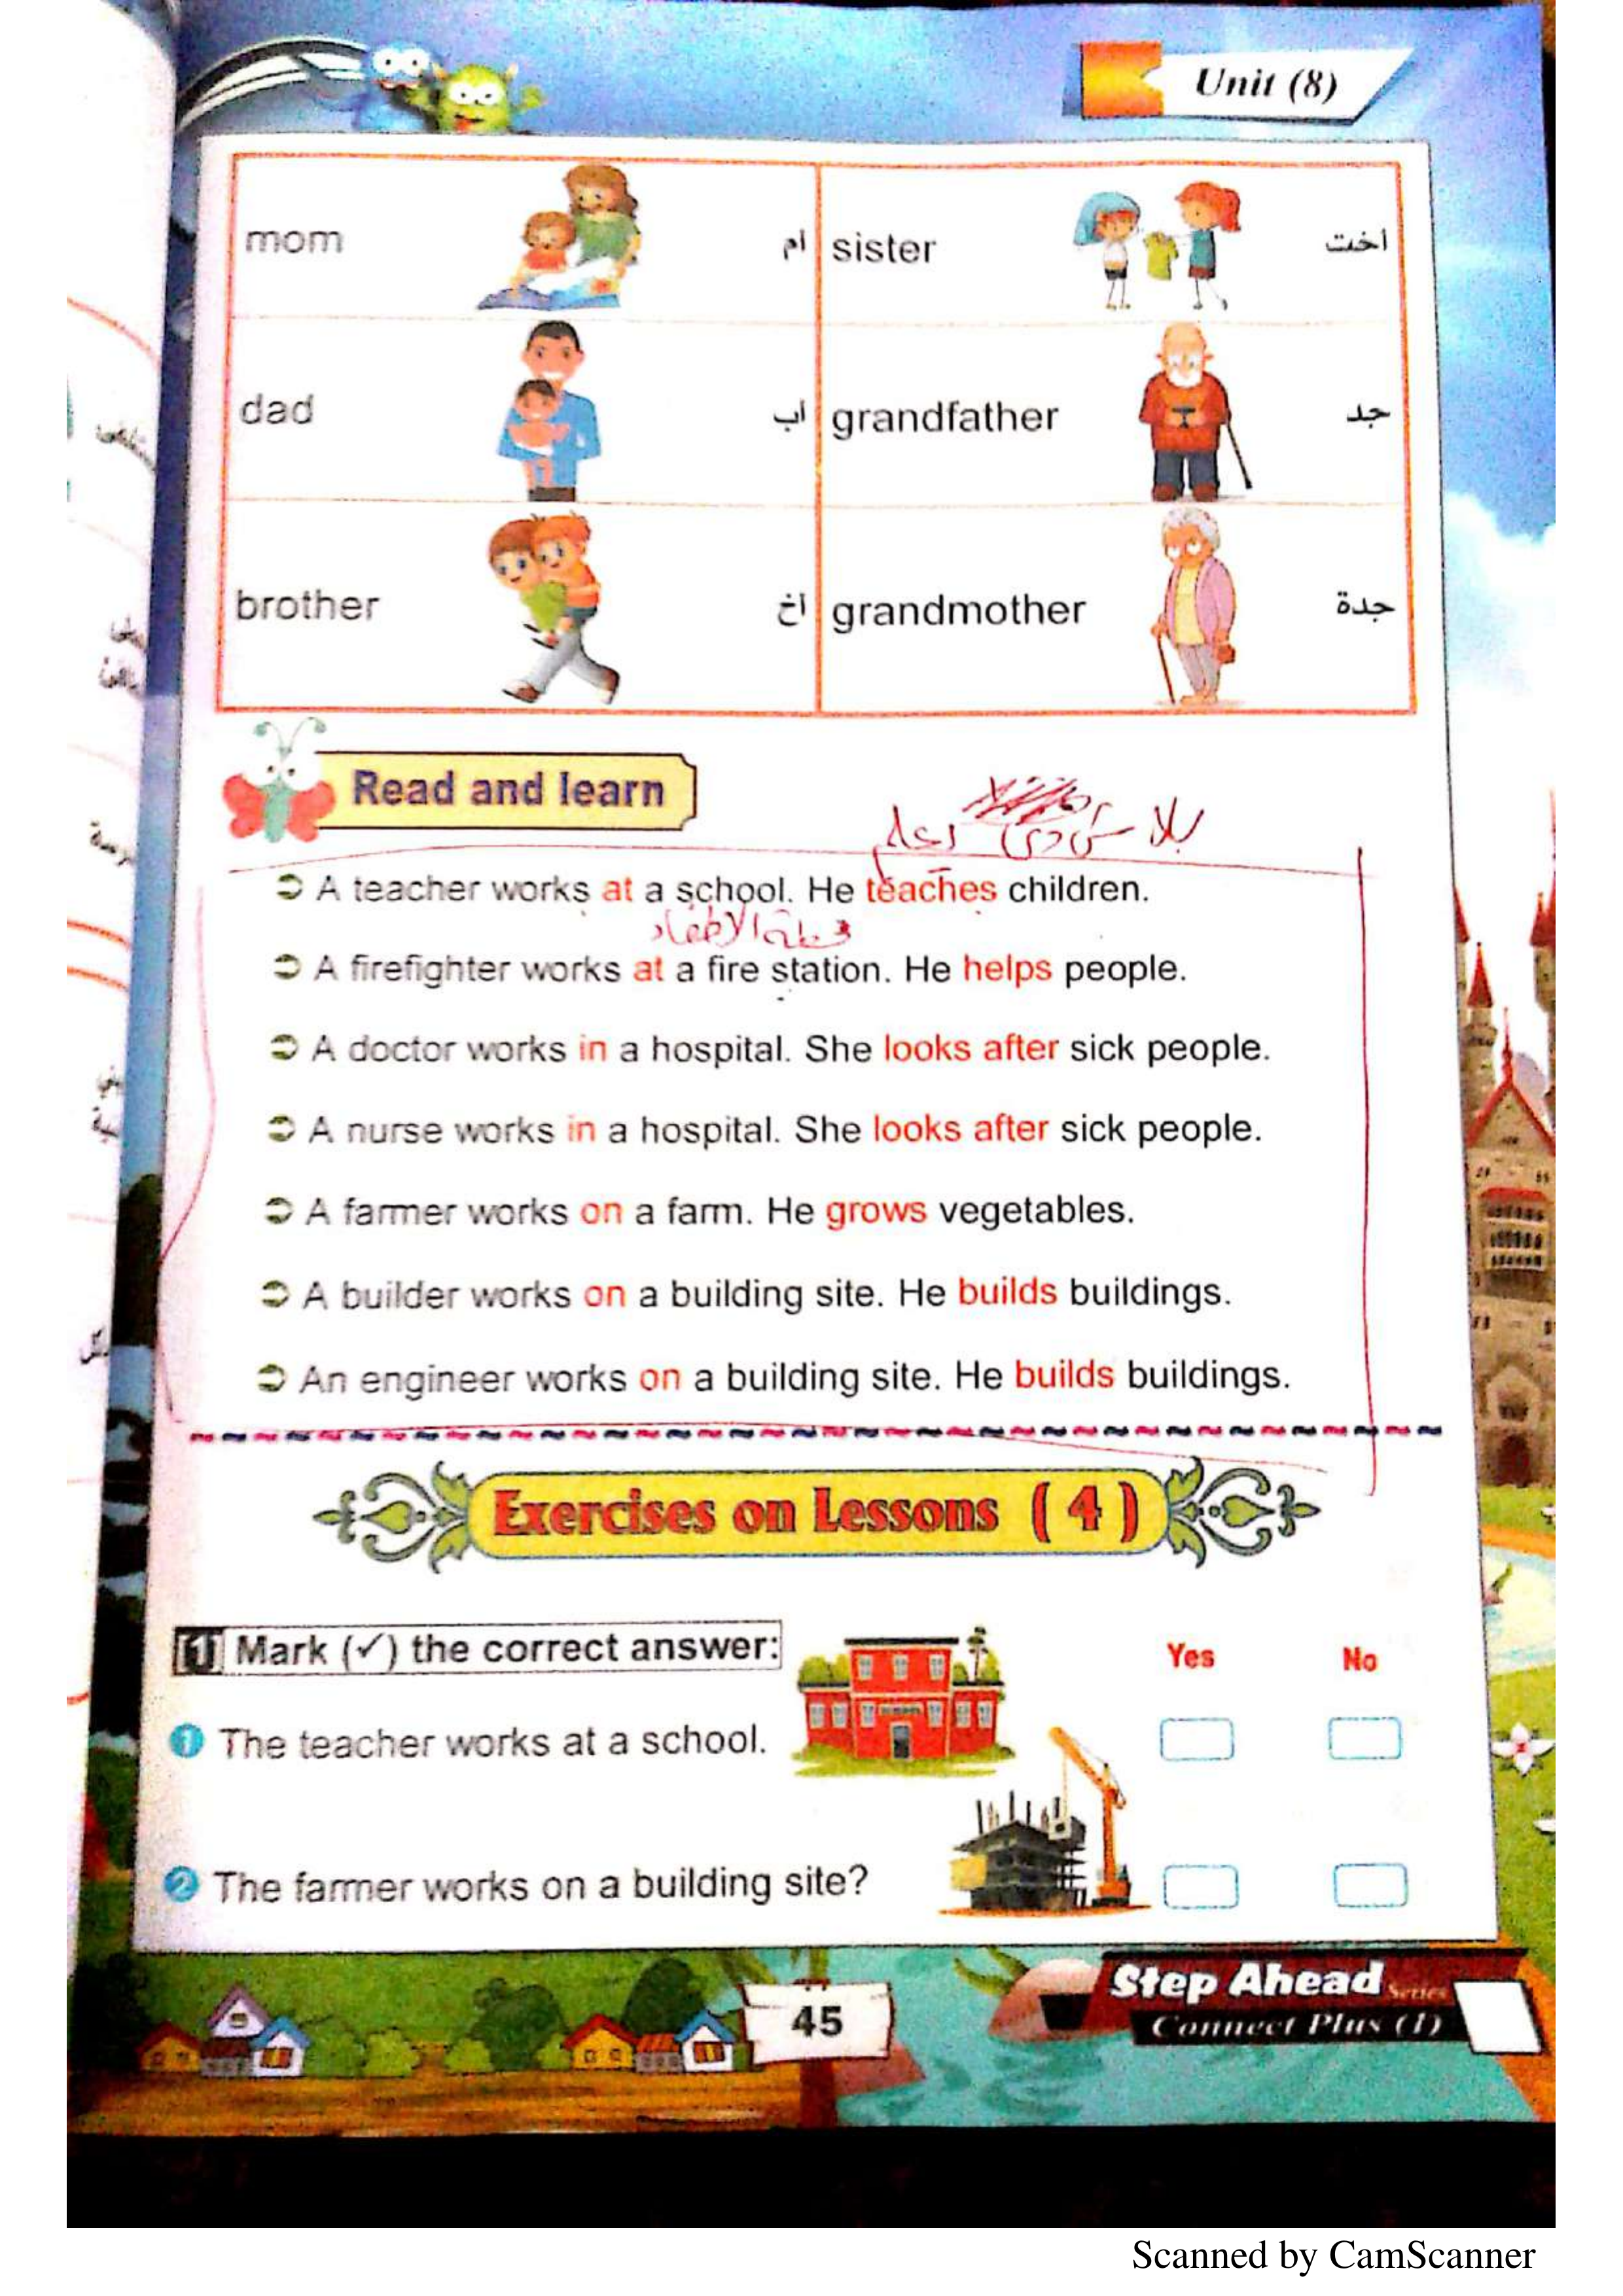 Unit (8)
mom أم sister أخت
dad أب grandfather جد
brother أخ grandmother جدة
Read and learn
➲ A teacher works at a school. He teaches children.
محطة الإطفاء
➲ A firefighter works at a fire station. He helps people.
➲ A doctor works in a hospital. She looks after sick people.
➲ A nurse works in a hospital. She looks after sick people.
➲ A farmer works on a farm. He grows vegetables.
➲ A builder works on a building site. He builds buildings.
➲ An engineer works on a building site. He builds buildings.
Exercises on Lessons ( 4 )
1 Mark (✓) the correct answer:
Yes No
1 The teacher works at a school.
2 The farmer works on a building site?
45
Step Ahead Series
Connect Plus (1)
Scanned by CamScanner